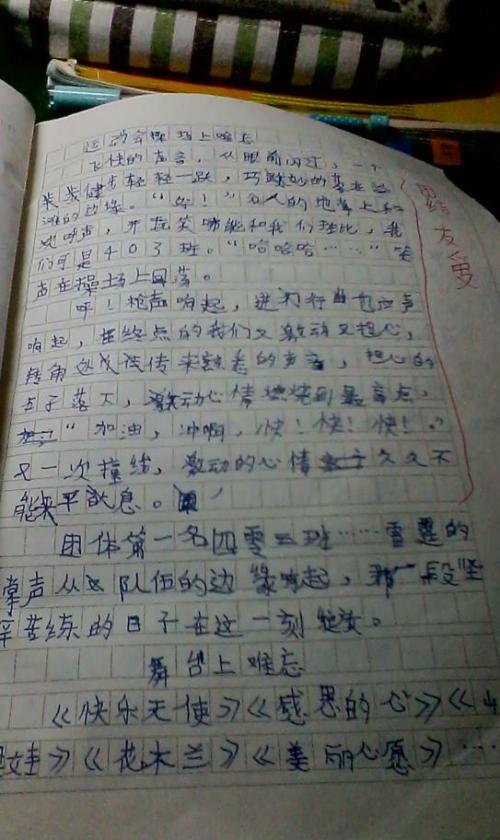 运动会操场上难忘
飞快的声音，从眼前闪过，一个
健步轻轻一跃，巧妙的落在
的边缘。“ ！”
声，开玩笑哪能和我们班比，我
们可是403班。“哈哈哈……”笑
声在操场上回荡。
呼！枪声响起，进行曲也应声
响起，在终点的我们又激动又担心，
转角处 传来 的声音，担心的
落下，激动心情燃烧到最高点，
“加油，冲啊，快！快！快！”
又一次撞线，激动的心情久久不
能 平 息。
团体第一名四零三班……雷霆的
掌声从 队伍的边缘响起，那一段坚
辛苦练的日子在这一刻绽放。
舞台上难忘
《快乐天使》《感恩的心》《
》《花木兰》《美丽心愿》……
团结友爱